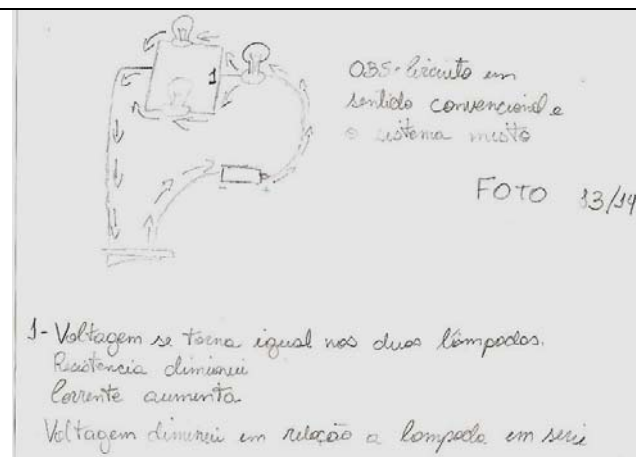 1
OBS- Circuito em
sentido convencional e
o sistema misto
- +
FOTO 13/14
1- Voltagem se torna igual nas duas lâmpadas.
Resistencia diminui
Corrente aumenta
Voltagem diminui em relação a lampada em serie